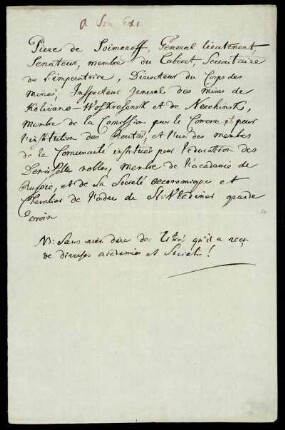 a Son Exc
Pierre de Soimonoff, General lieutenant,
Senateur, membre du Cabinet, Secretaire
de l'imperatrice, Directeur du Corps des
mines, Inspecteur general des mines de
Kolivano-Woskresensk et de Nerchinsk,
Membre de la Commission pour le Comerce et pour
l'institution des Routes, et l'un des membres
de la Comunauté instituée pour l'education des
Demoiselle nobles, membre de l'academie de
Russie, et de la Societé oeconomique et
Chevalier de l'odre de St. Wladimir grande
Croix
N: Sans rien dire des Titres qu'il a reçu
de diverses academies et Societés!